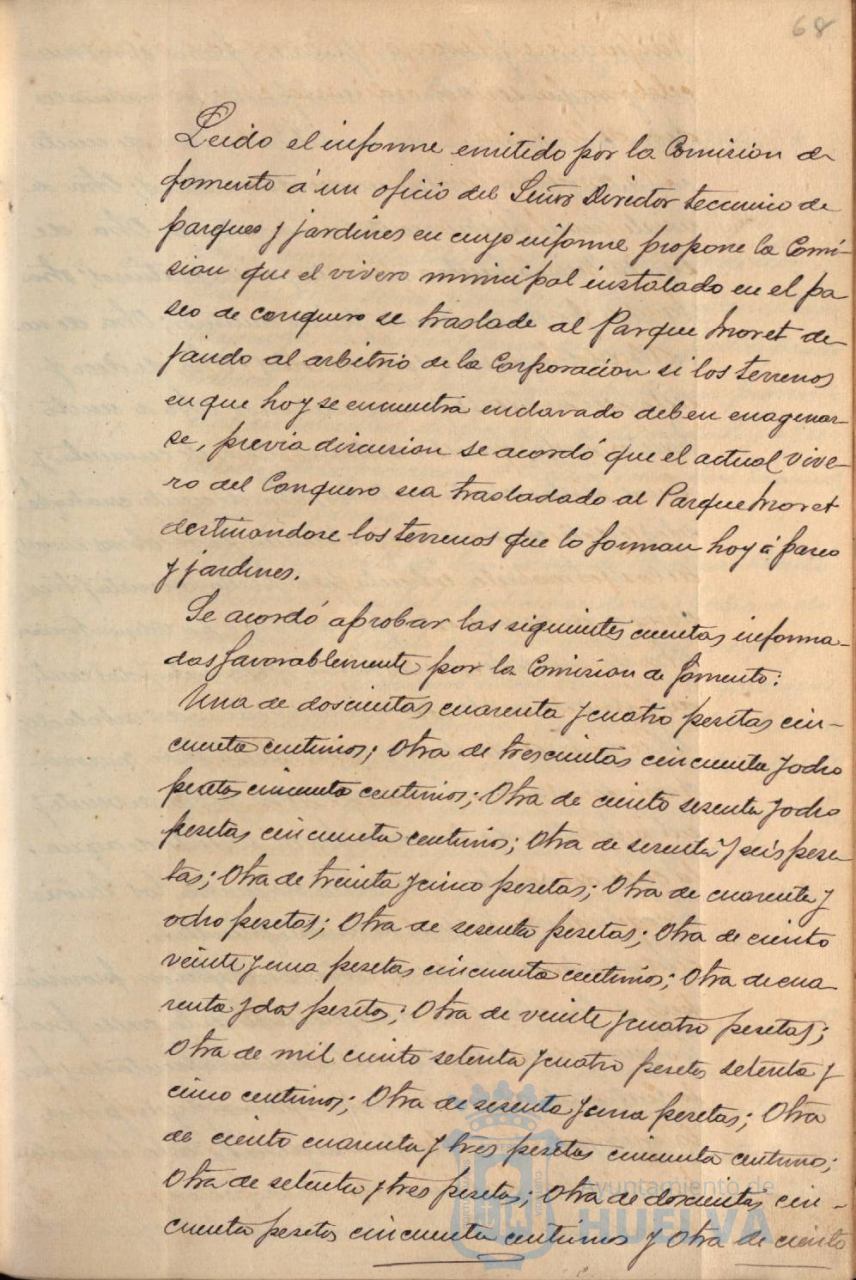 68
Leido el informe emitido por la Comision de
fomento á un oficio del Señor Director tecnico de
parques y jardines en cuyo informe propone la Comi-
sion que el vivero municipal instalado en el pa
seo de conquero se traslade al Parque Moret de-
jando al arbitrio de la Corporacion si los terrenos
en que hoy se encuentra enclavado deben enagenar-
se, previa discusion se acordó que el actual vive-
ro del Conquero sea trasladado al Parque Moret
destinandose los terrenos que lo forman hoy á paseo
y jardines.
Se acordó aprobar las siguientes cuentas informa-
das favorablemente por la Comision de fomento:
Una de doscientas cuarenta y cuatro pesetas cin-
cuenta centimos; Otra de trescientas cincuenta y ocho
pesetas cincuenta centimos; Otra de ciento sesenta y ocho
pesetas cincuenta centimos; Otra de sesenta y seis pese
tas; Otra de treinta y cinco pesetas; Otra de cuarenta y
ocho pesetas; Otra de sesenta pesetas; Otra de ciento
veinte y una pesetas cincuenta centimos; Otra de cua
renta y dos pesetas; Otra de veinte y cuatro pesetas;
Otra de mil ciento setenta y cuatro pesetas setenta y
cinco centimos; Otra de sesenta y una pesetas; Otra
de ciento cuarenta y tres pesetas cincuenta centimos;
Otra de setenta y tres pesetas; Otra de doscientas cin-
cuenta pesetas cincuenta centimos y Otra de ciento
ayuntamiento de
HUELVA